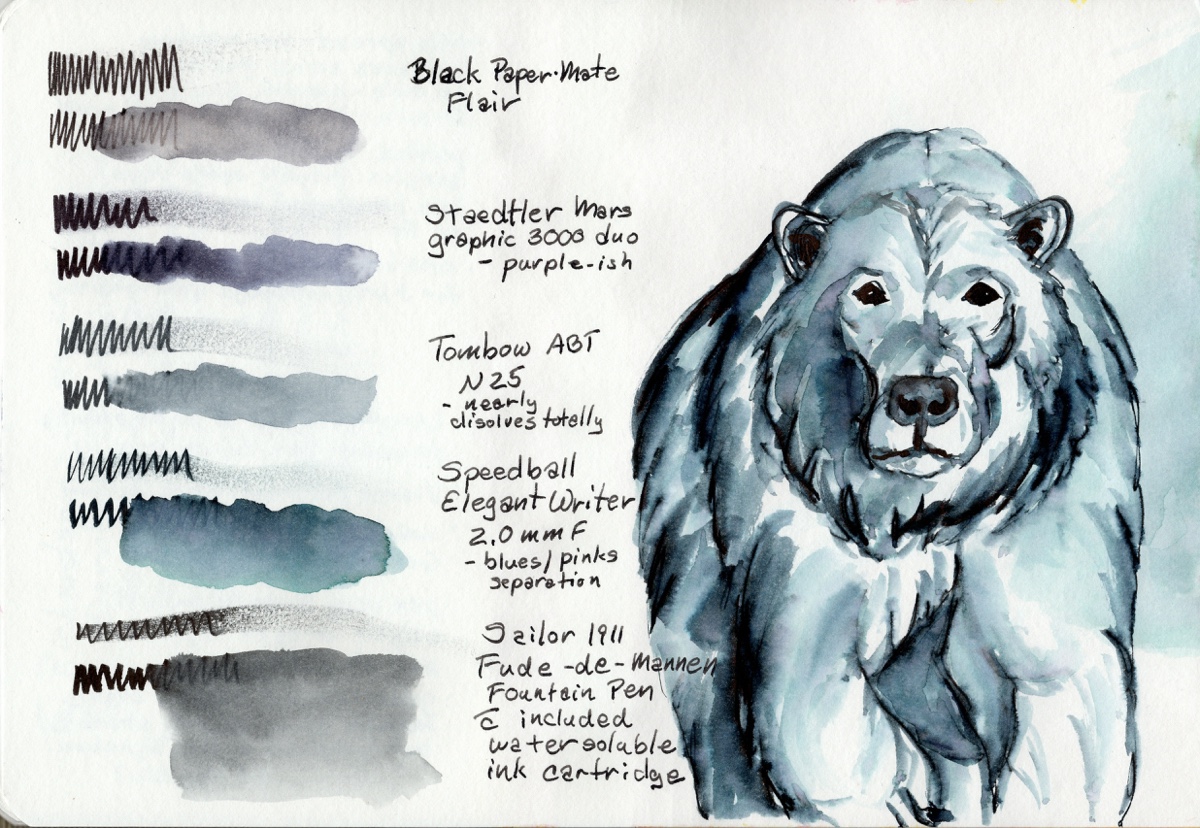 Black Paper·Mate
Flair
Staedtler Mars
graphic 3000 duo
- purple-ish
Tombow ABT
N25
- nearly
disolves totally
Speedball
Elegant Writer
2.0 mm F
- blues/pinks
separation
Sailor 1911
Fude-de-Mannen
Fountain Pen
c̄ included
watersoluble
ink cartridge